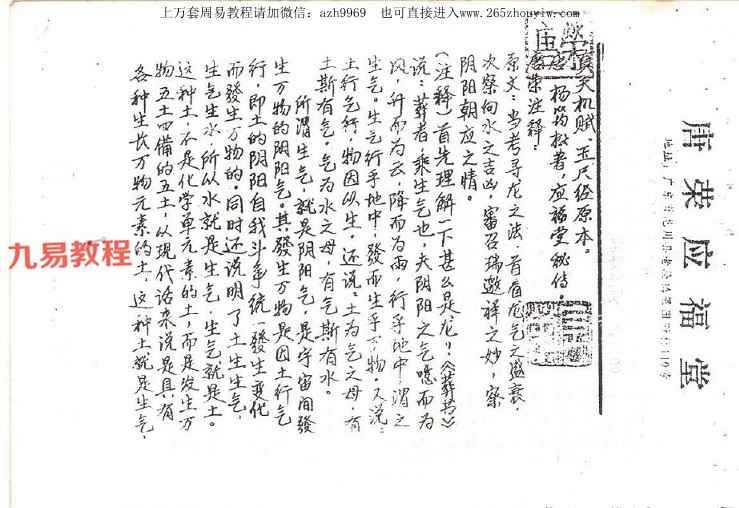 上万套周易教程请加微信：azh9969    也可直接进入www.265zhouyiw.com
唐荣应福堂
地址：广东省
天机赋 玉尺经原本。
杨筠松著，应福堂秘传。
唐荣注释。
原文：当考寻龙之法，首看龙气之盛衰，
次察向水之吉凶，审召瑞邀祥之妙，察
阴阳朝应之情。
（注释）首先理解一下甚么是龙？《葬书》
说：葬者，乘生气也，夫阴阳之气噫而为
风，升而为云，降而为雨，行乎地中谓之
生气。生气行乎地中，發而生乎万物。又说：
土行气行，物因以生，还说：土为气之母，有
土斯有气。气为水之母，有气斯有水。
所谓生气，就是阴阳气，是宇宙间發
生万物的阴阳气。其發生万物是因土行气
行，即土的阴阳自我斗争统一發生变化
而發生万物的。同时还说明了土生生气，
生气生水，所以水就是生气，生气就是土。
这种土，不是化学单元素的土，而是发生万
物五土四備的五土，从现代话来说是具有
各种生长万物元素的土，这种土就是生气，
九易教程